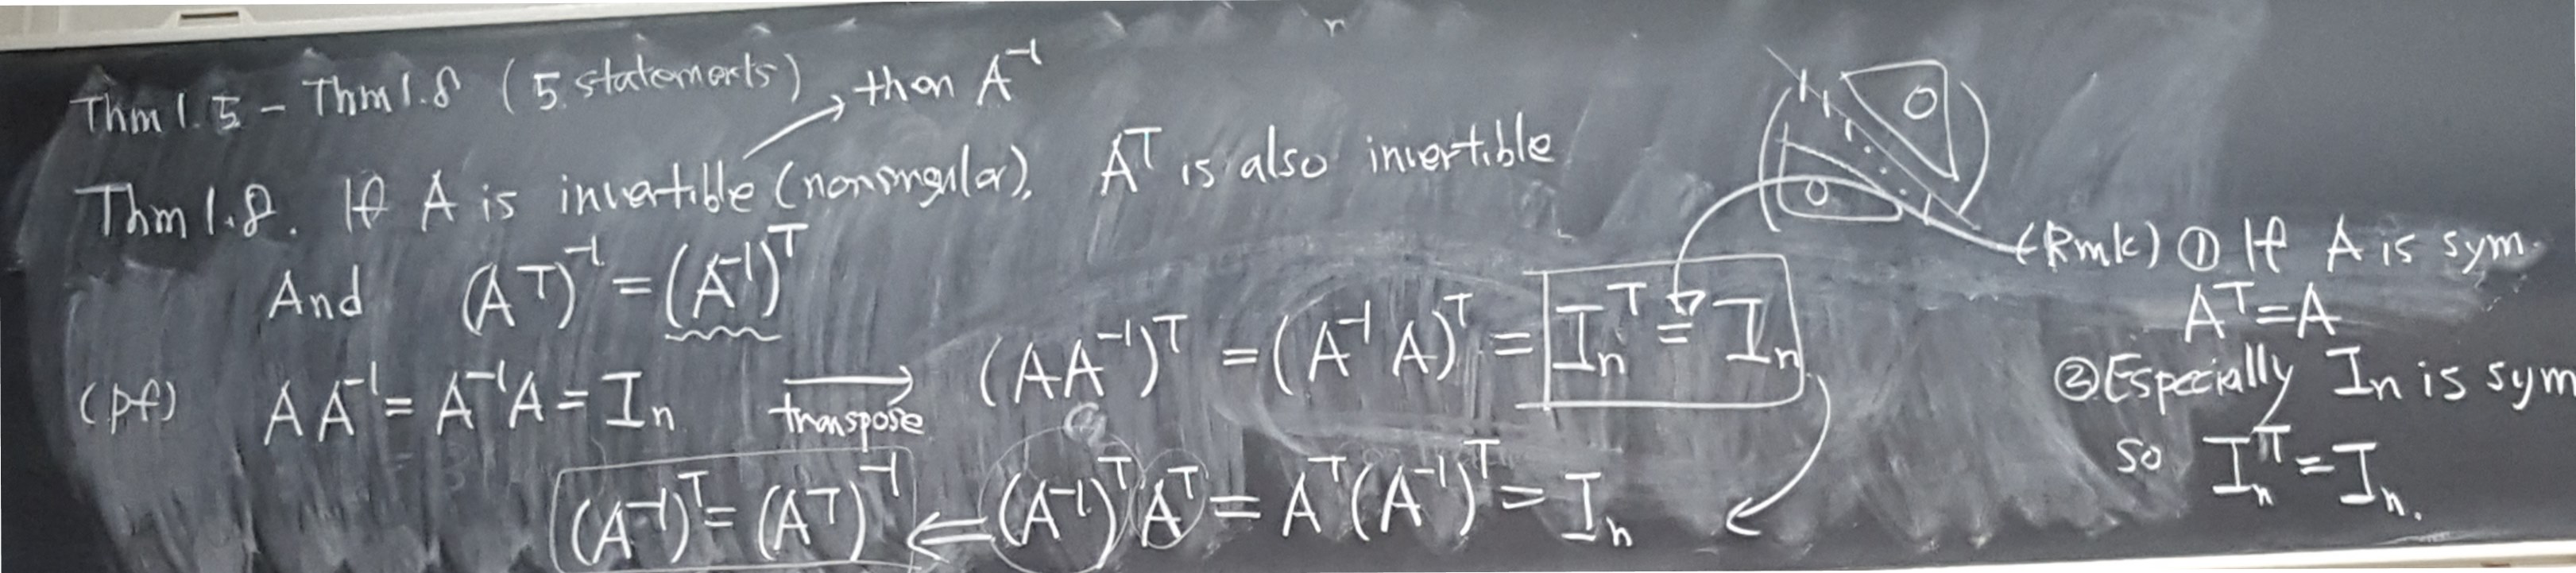 Thm 1.5 - Thm 1.8 ( 5 statements ) then A⁻¹
Thm 1.8. If A is invertible (nonsingular), Aᵀ is also invertible
And (Aᵀ)⁻¹ = (A⁻¹)ᵀ
(pf) A A⁻¹ = A⁻¹A = Iₙ transpose (AA⁻¹)ᵀ = (A⁻¹A)ᵀ = Iₙᵀ = Iₙ
(A⁻¹)ᵀ = (Aᵀ)⁻¹ ⇐ (A⁻¹)ᵀ Aᵀ = Aᵀ(A⁻¹)ᵀ = Iₙ
1 1 1 0
0 1
(Rmk) ① If A is sym.
Aᵀ = A
② Especially Iₙ is sym
so Iₙᵀ = Iₙ.